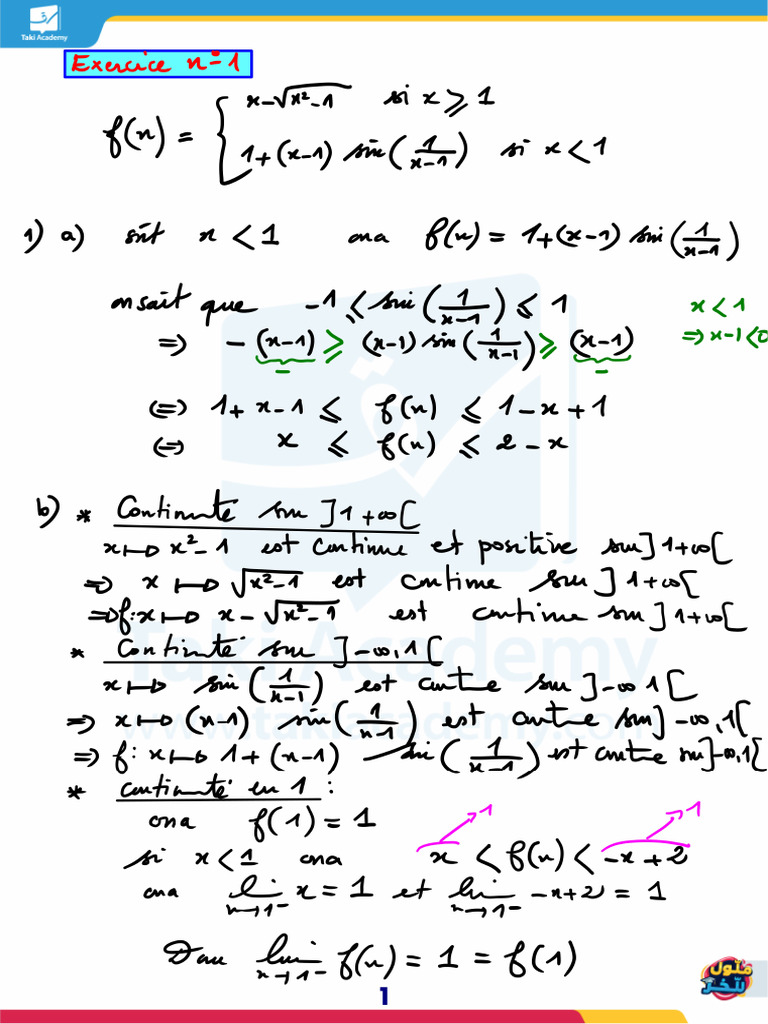 Taki Academy
Exercice n=1
f(x) = { x-√(x²-1) si x ⩾ 1
1+(x-1) sin(1/(x-1)) si x < 1
1) a) soit x < 1 ona f(x) = 1+(x-1) sin(1/(x-1))
on sait que -1 ⩽ sin(1/(x-1)) ⩽ 1 x < 1
=> -(x-1) ⩾ (x-1) sin(1/(x-1)) ⩾ (x-1) => x-1<0
- -
(=) 1+x-1 ⩽ f(x) ⩽ 1-x+1
(=) x ⩽ f(x) ⩽ 2-x
b) * Continuité sur ]1+∞[
x↦x²-1 est continue et positive sur]1+∞[
=> x↦√(x²-1) est continue sur ]1+∞[
=>f:x↦ x-√(x²-1) est continue sur]1+∞[
* Continuité sur ]-∞,1[
x↦ sin(1/(x-1)) est continue sur ]-∞ 1[
=> x↦(x-1) sin(1/(x-1)) est continue sur]-∞,1[
=> f: x↦ 1+(x-1) sin(1/(x-1)) est continue sur]-∞,1[
* continuité en 1 :
ona f(1) = 1
1 1
si x<1 ona x < f(x) < -x+2
ona lim x→1⁻ x = 1 et lim x→1⁻ -x+2 = 1
Donc lim x→1⁻ f(x) = 1 = f(1)
Taki Academy
www.takiacademy.com
1